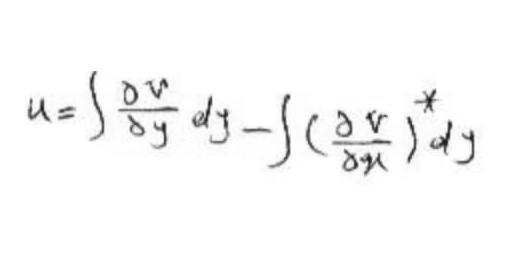 u = ∫ ∂v/∂y dy − ∫ (∂v/∂x)* dy